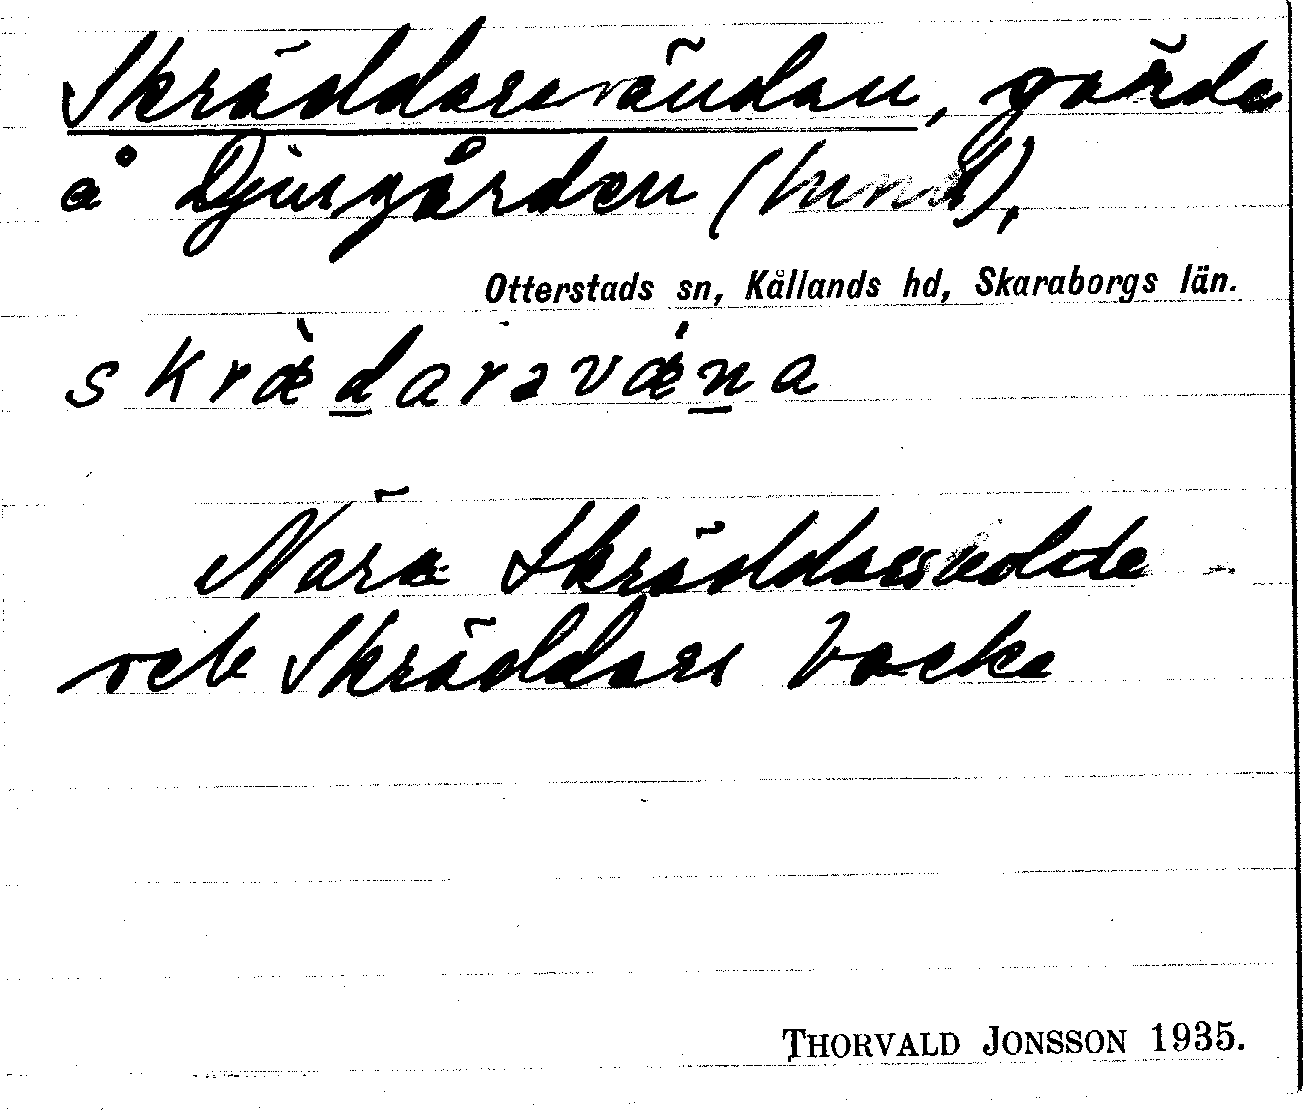 Skräddarevändan, gärde
å Djurgården (hmd),
Otterstads sn, Kållands hd, Skaraborgs län.
skræ̀daravǽna
Nära Skräddare
och Skräddare backe
THORVALD JONSSON 1935.